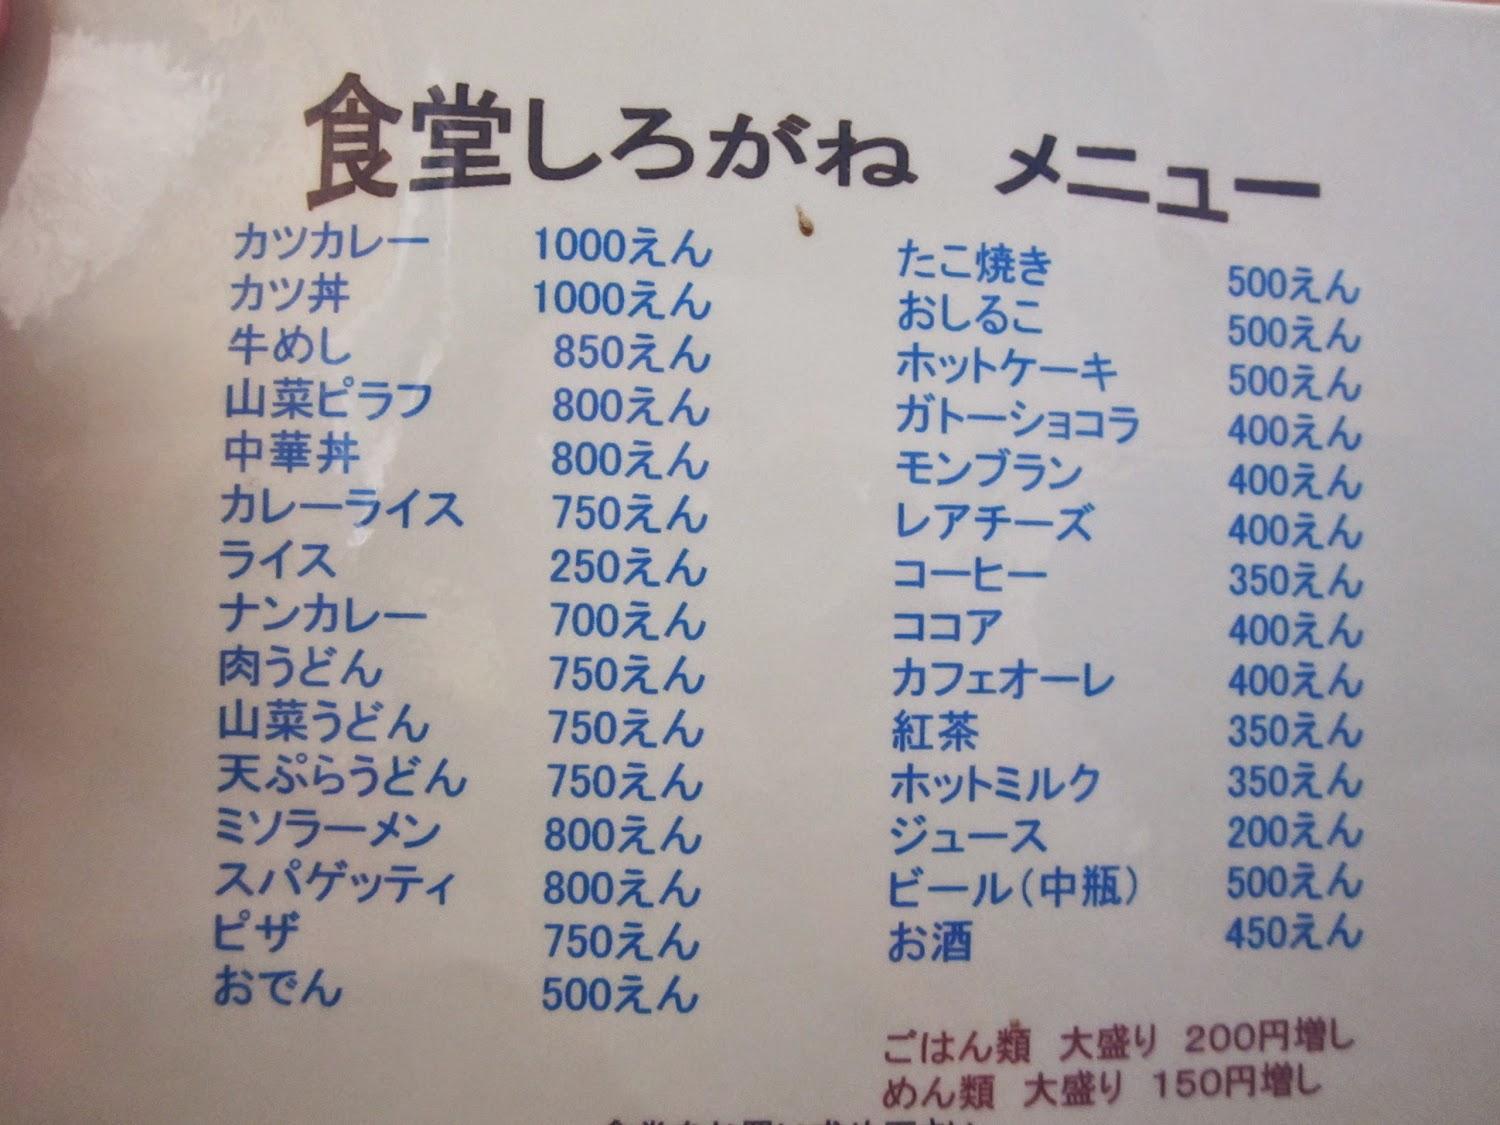 食堂しろがね　メニュー
カツカレー　1000えん
カツ丼　1000えん
牛めし　850えん
山菜ピラフ　800えん
中華丼　800えん
カレーライス　750えん
ライス　250えん
ナンカレー　700えん
肉うどん　750えん
山菜うどん　750えん
天ぷらうどん　750えん
ミソラーメン　800えん
スパゲッティ　800えん
ピザ　750えん
おでん　500えん
たこ焼き　500えん
おしるこ　500えん
ホットケーキ　500えん
ガトーショコラ　400えん
モンブラン　400えん
レアチーズ　400えん
コーヒー　350えん
ココア　400えん
カフェオーレ　400えん
紅茶　350えん
ホットミルク　350えん
ジュース　200えん
ビール（中瓶）　500えん
お酒　450えん
ごはん類　大盛り　200円増し
めん類　大盛り　150円増し